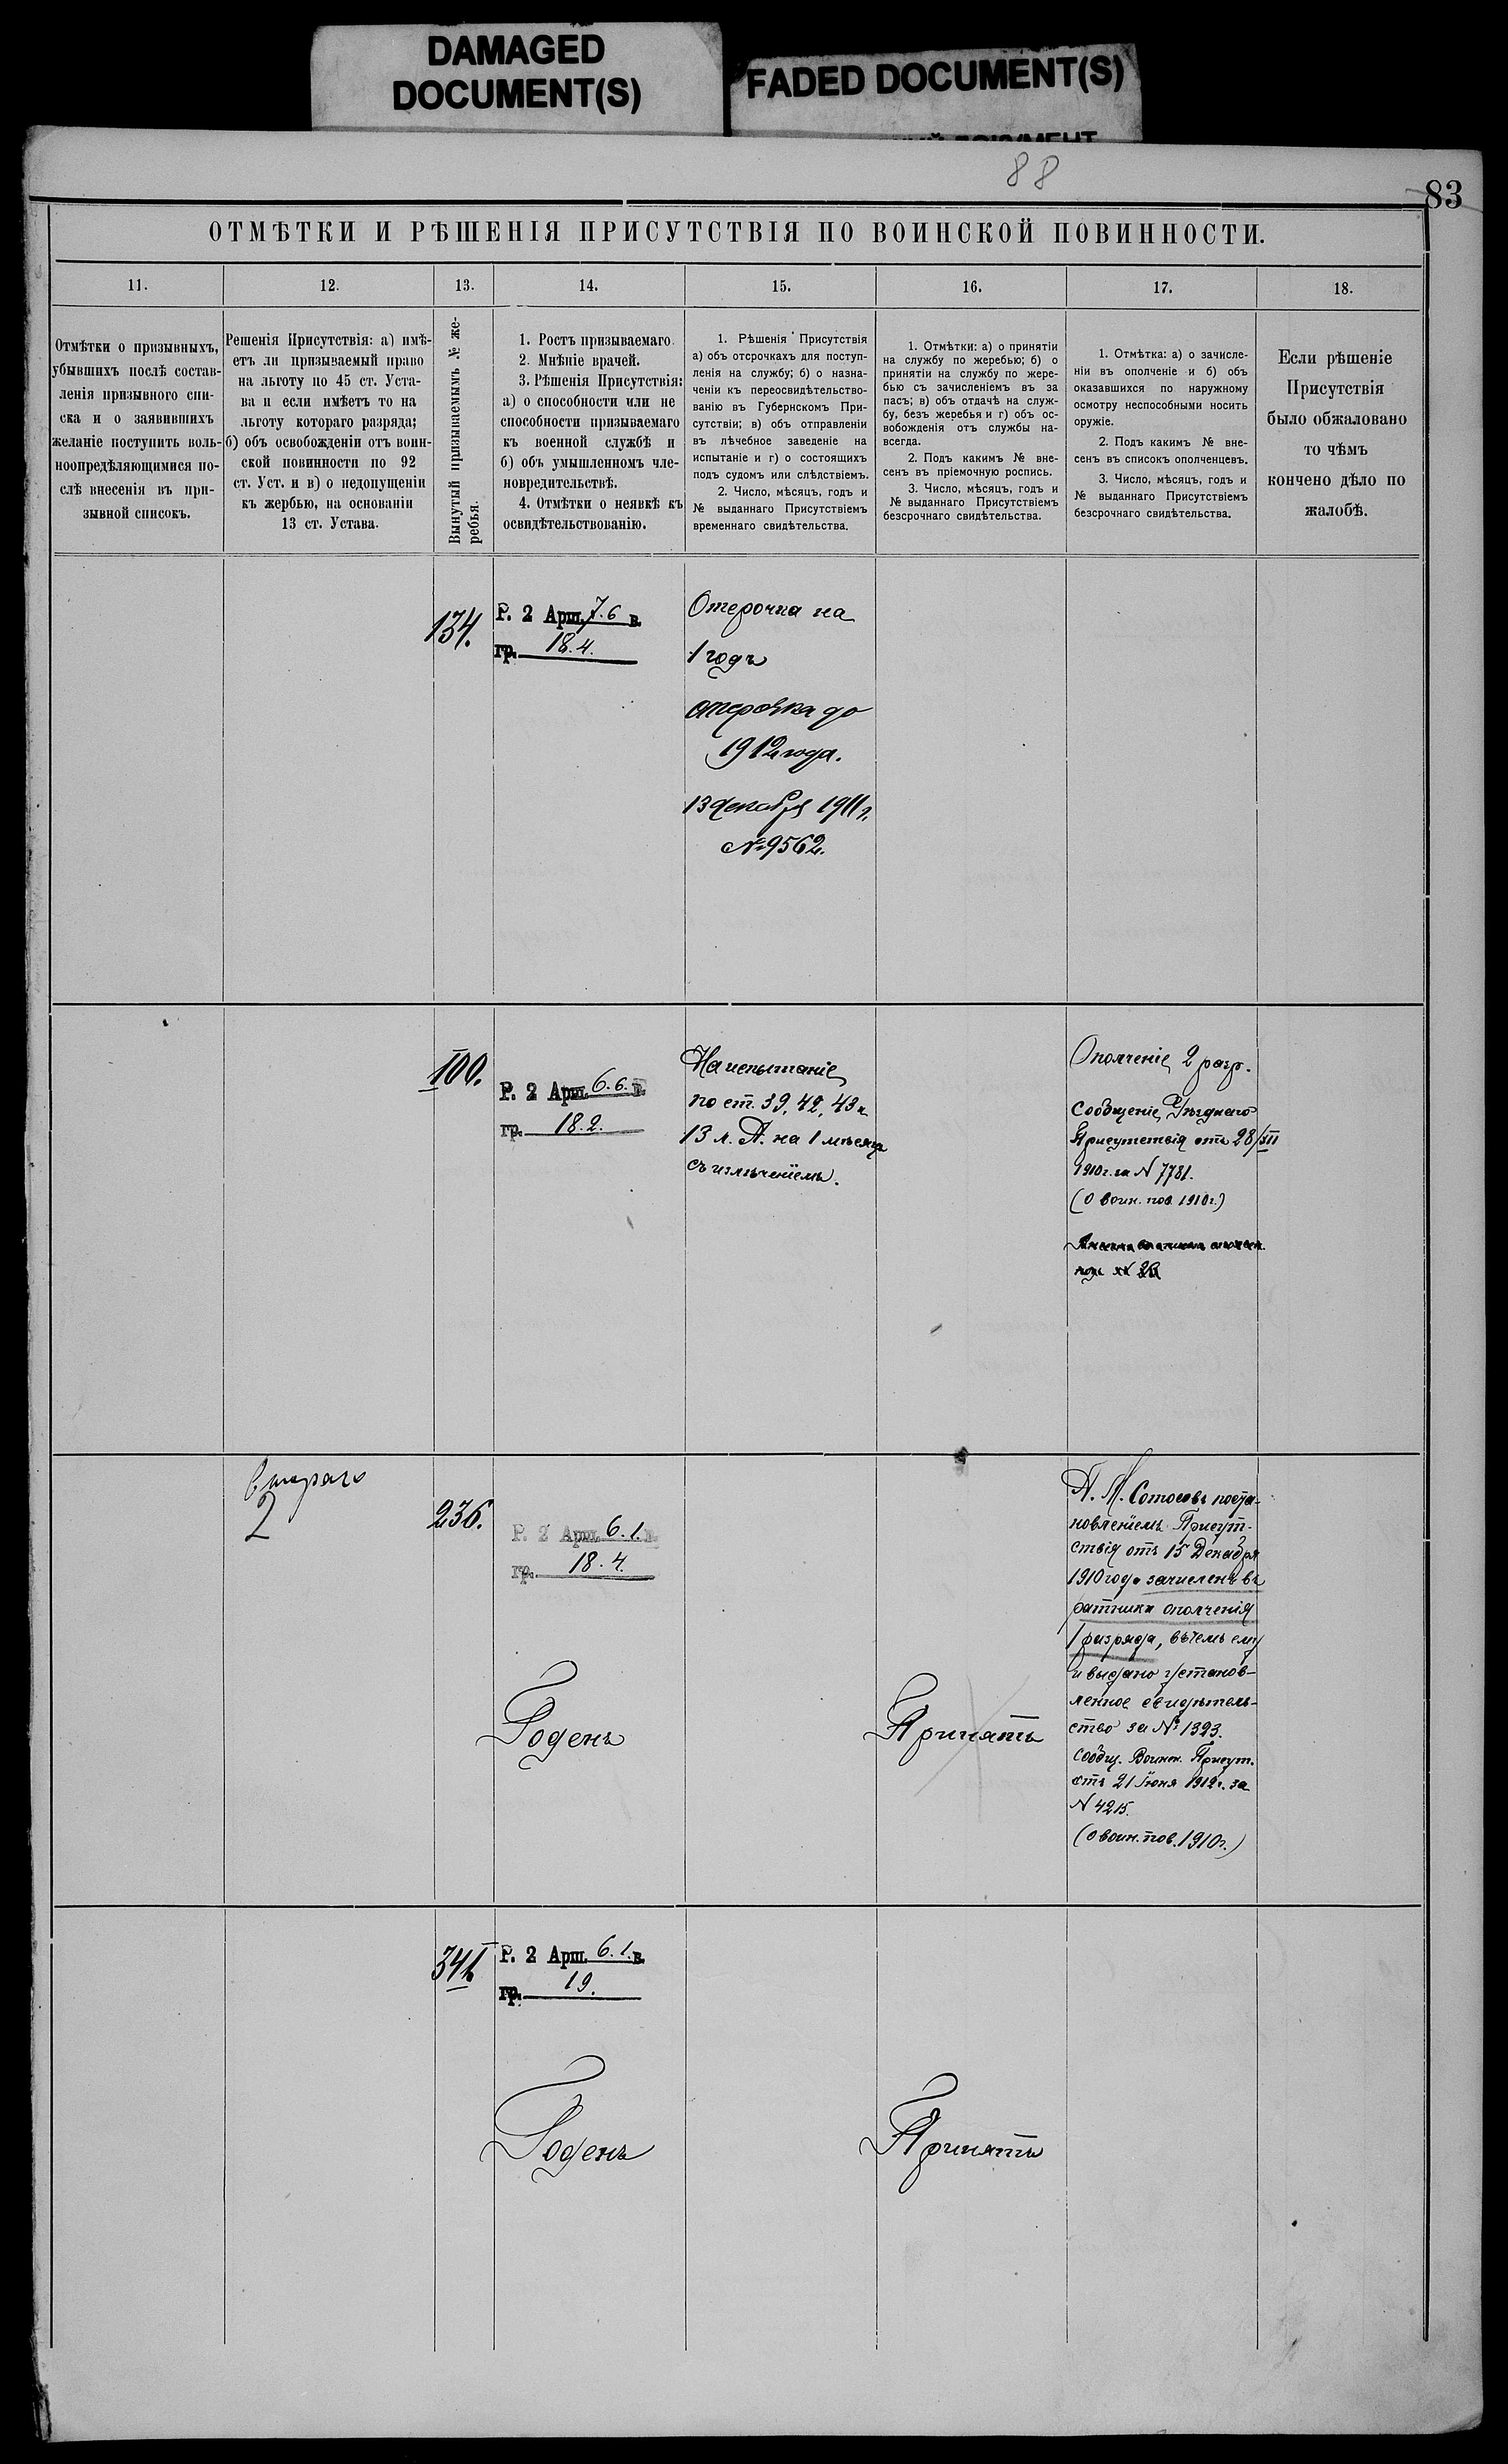 DAMAGED
DOCUMENT(S)
FADED DOCUMENT(S)
88
83
ОТМѢТКИ И РѢШЕНІЯ ПРИСУТСТВІЯ ПО ВОИНСКОЙ ПОВИННОСТИ.
11.
12.
13.
14.
15.
16.
17.
18.
Отмѣтки о призывныхъ,
убывшихъ послѣ состав-
ленія призывного спи-
ска и о заявившихъ
желаніе поступить воль-
ноопредѣляющимися по-
слѣ внесенія въ при-
зывной списокъ.
Решенія Присутствія: а) имѣ-
етъ ли призываемый право
на льготу по 45 ст. Уста-
ва и если имѣетъ то на
льготу котораго разряда;
б) объ освобожденіи отъ воин-
ской повинности по 92
ст. Уст. и в) о недопущеніи
къ жербью, на основаніи
13 ст. Устава.
Вынутый призываемымъ № же-
ребья.
1. Ростъ призываемаго.
2. Мнѣніе врачей.
3. Рѣшенія Присутствія:
а) о способности или не
способности призываемаго
къ военной службѣ и
б) объ умышленномъ чле-
новредительствѣ.
4. Отмѣтки о неявкѣ къ
освидѣтельствованію.
1. Рѣшенія Присутствія
а) объ отсрочкахъ для поступ-
ленія на службу; б) о назна-
ченіи къ переосвидѣтельство-
ванію въ Губернскомъ При-
сутствіи; в) объ отправленіи
въ лѣчебное заведеніе на
испытаніе и г) о состоящихъ
подъ судомъ или слѣдствіемъ.
2. Число, мѣсяцъ, годъ и
№ выданнаго Присутствіемъ
временнаго свидѣтельства.
1. Отмѣтки: а) о принятіи
на службу по жеребью; б) о
принятіи на службу по жере-
бью съ зачисленіемъ въ за
пасъ; в) объ отдачѣ на служ-
бу, безъ жеребья и г) объ ос-
вобожденія отъ службы на-
всегда.
2. Подъ какимъ № вне-
сенъ въ пріемочную роспись.
3. Число, мѣсяцъ, годъ и
№ выданнаго Присутствіемъ
безсрочнаго свидѣтельства.
1. Отмѣтка: а) о зачисле-
ніи въ ополченіе и б) объ
оказавшихся по наружному
осмотру неспособными носить
оружіе.
2. Подъ какимъ № вне-
сенъ въ списокъ ополченцевъ.
3. Число, мѣсяцъ, годъ и
№ выданнаго Присутствіемъ
безсрочнаго свидѣтельства.
Если рѣшеніе
Присутствія
было обжаловано
то чѣмъ
кончено дѣло по
жалобѣ.
134.
Р. 2 Арш. 7.6 в.
гр. 18.4.
Отсрочка на
1 годъ
отсрочка до
1912 года.
13 декабря 1911 г.
№ 9562.
100.
Р. 2 Арш. 6.6. в.
гр. 18.2.
На испытаніе
по ст. 39, 42, 43 и
13 л. А. на 1 мѣсяцъ
съ излѣченіемъ.
Ополченіе 2 разр.
Сообщеніе Уѣзднаго
Присутствія отъ 28/XII
1910 г. за N 7781.
(О воин. пов. 1910 г.)
подъ N
второго
2
236.
Р. 2 Арш. 6.1. в.
гр. 18.4.
Годенъ
Принятъ
А. М. Сотосовъ поста-
новленіемъ Присут-
ствія отъ 15 Декабря
1910 года зачисленъ въ
ратники ополченія
1 разряда, въ чемъ ему
и выдано установ-
ленное свидѣтель-
ство за № 1323.
Сообщ. Воинск. Присут.
отъ 21 Іюня 1912 г. за
N 4215.
(О воин. пов. 1910 г.)
341
Р. 2 Арш. 6.1. в.
гр. 19.
Годенъ
Принятъ